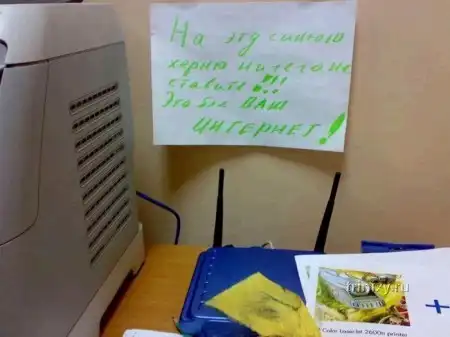 На эту синюю
херню ничего не
ставить!!!
Это бля ВАШ
ИНТЕРНЕТ!
trinixy.ru
Color LaserJet 2600n printer
+